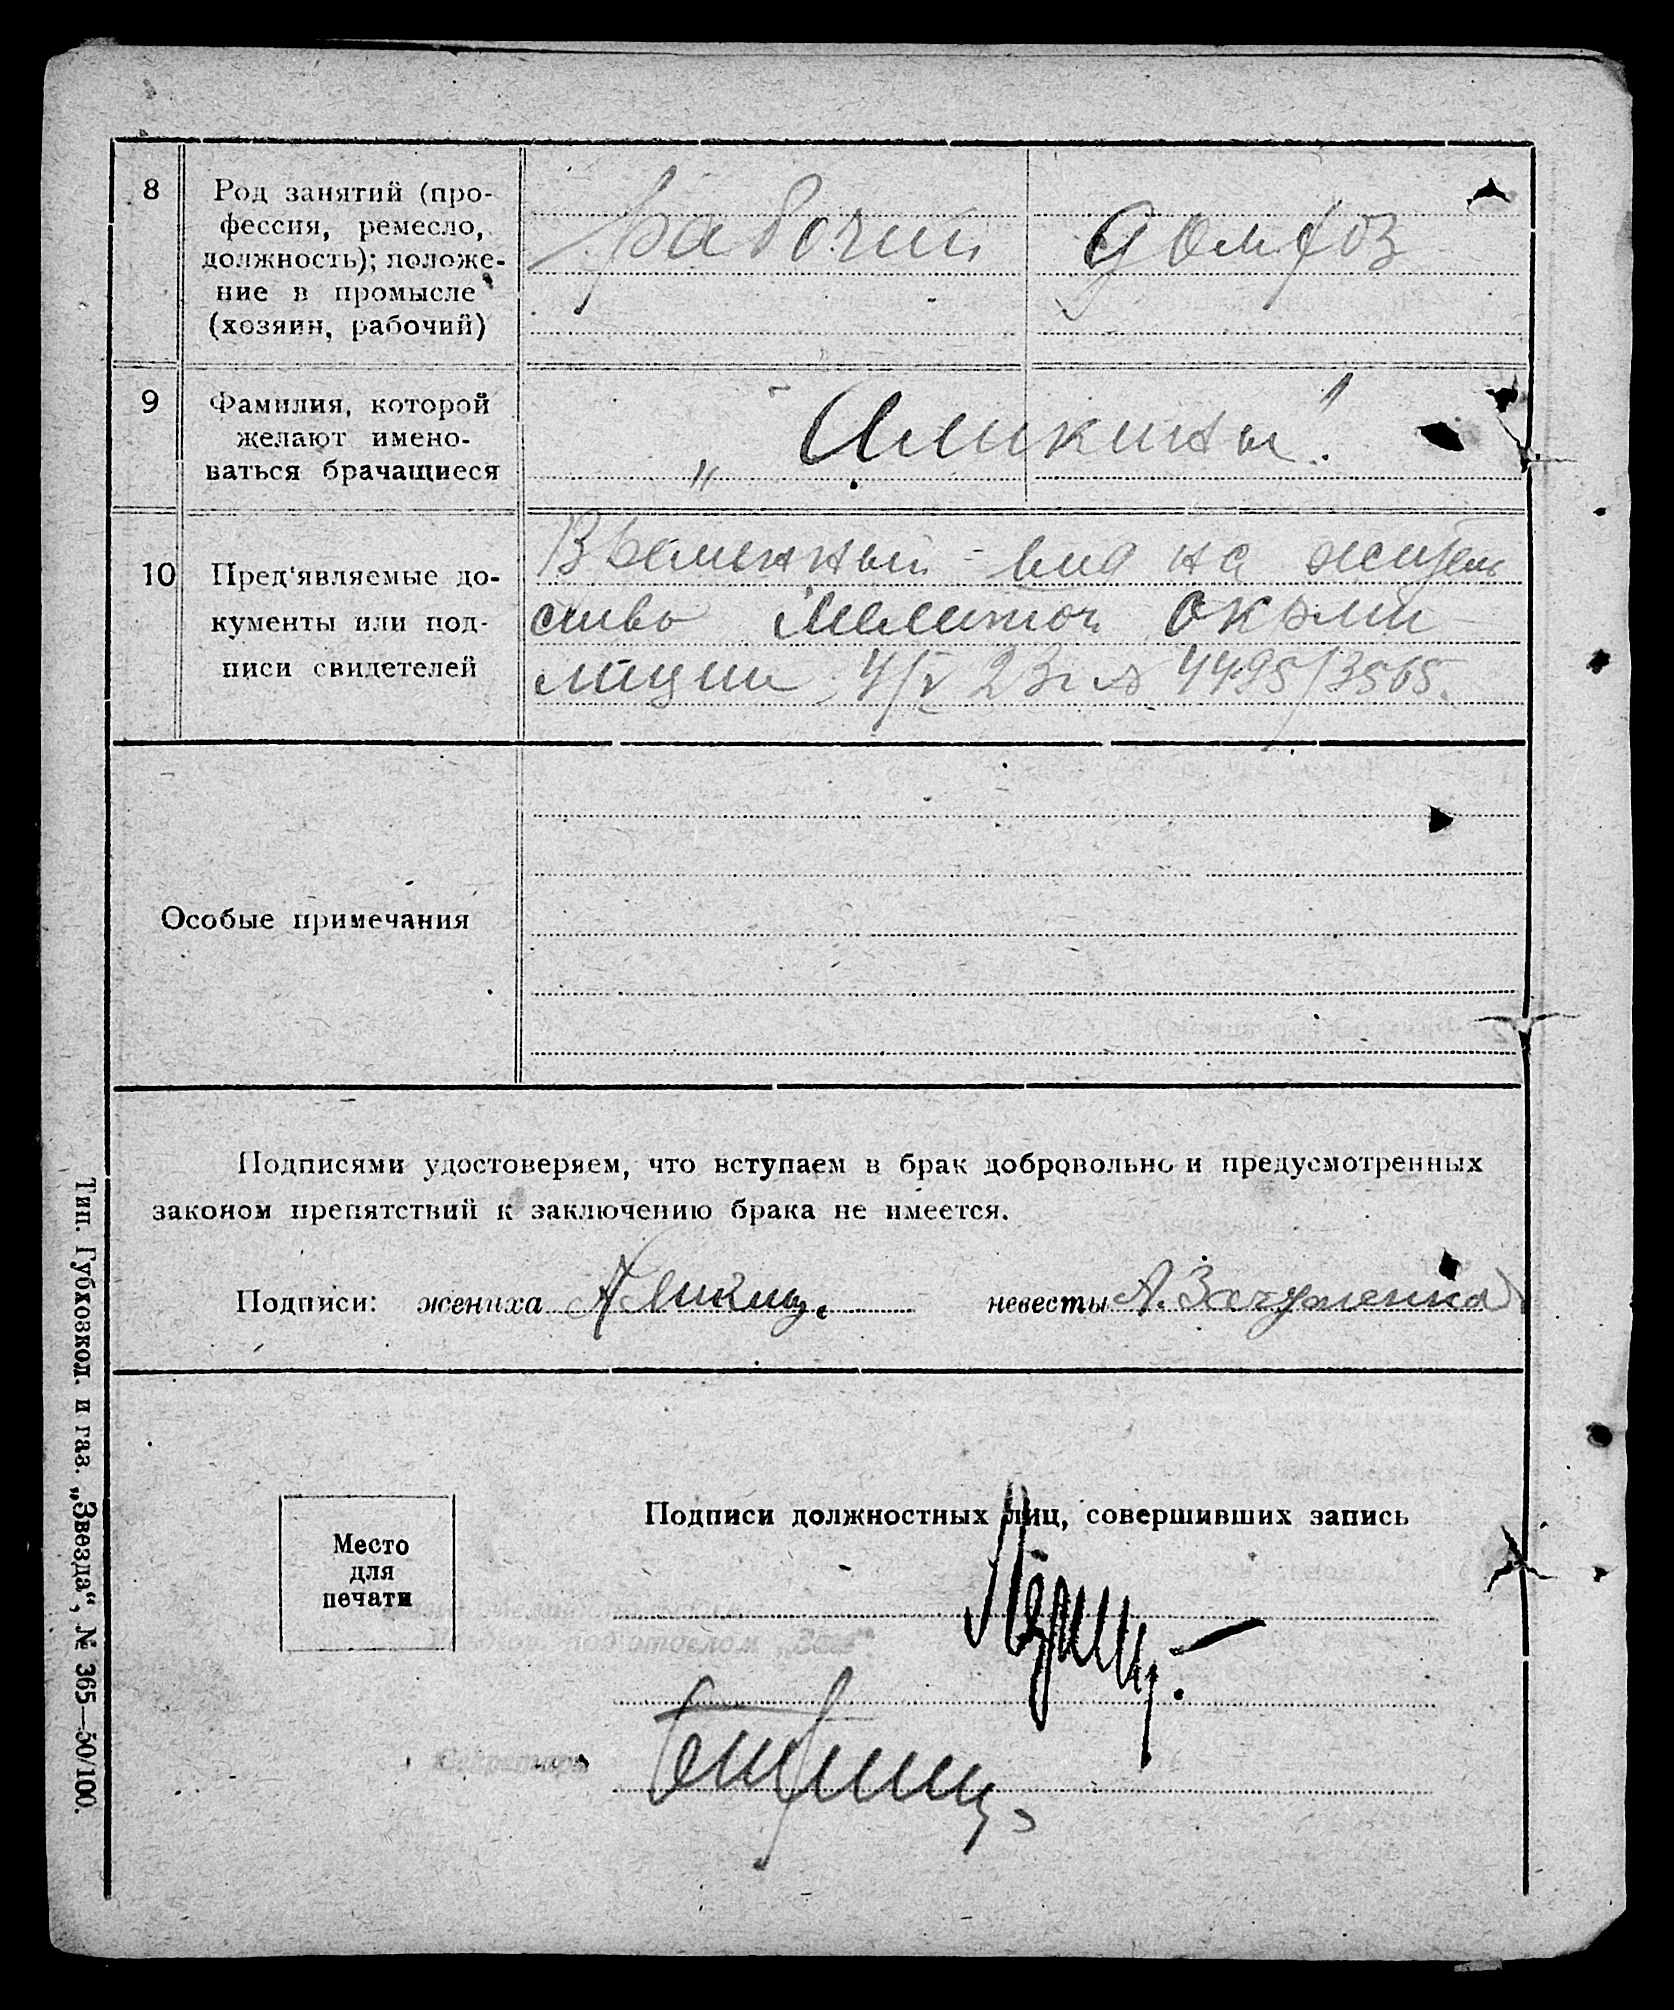 8
Род занятий (про-
фессия, ремесло,
должность); положе-
ние в промысле
(хозяин, рабочий)
рабочий
домхоз
9
Фамилия, которой
желают имено-
ваться брачащиеся
„Аликины"
10
Пред'являемые до-
кументы или под-
писи свидетелей
Временный вид на житель
ство Мелитоп окрми
лиции 4/V 23г № 4495/3565.
Особые примечания
Подписями удостоверяем, что вступаем в брак добровольно и предусмотренных
законом препятствий к заключению брака не имеется.
Подписи: жениха Аликин невесты А.
Место
для
печати
Подписи должностных лиц, совершивших запись
подотделом „Загс"
Секретарь
Тип. Губковзкол. и газ. „Звезда", № 365—50/100.